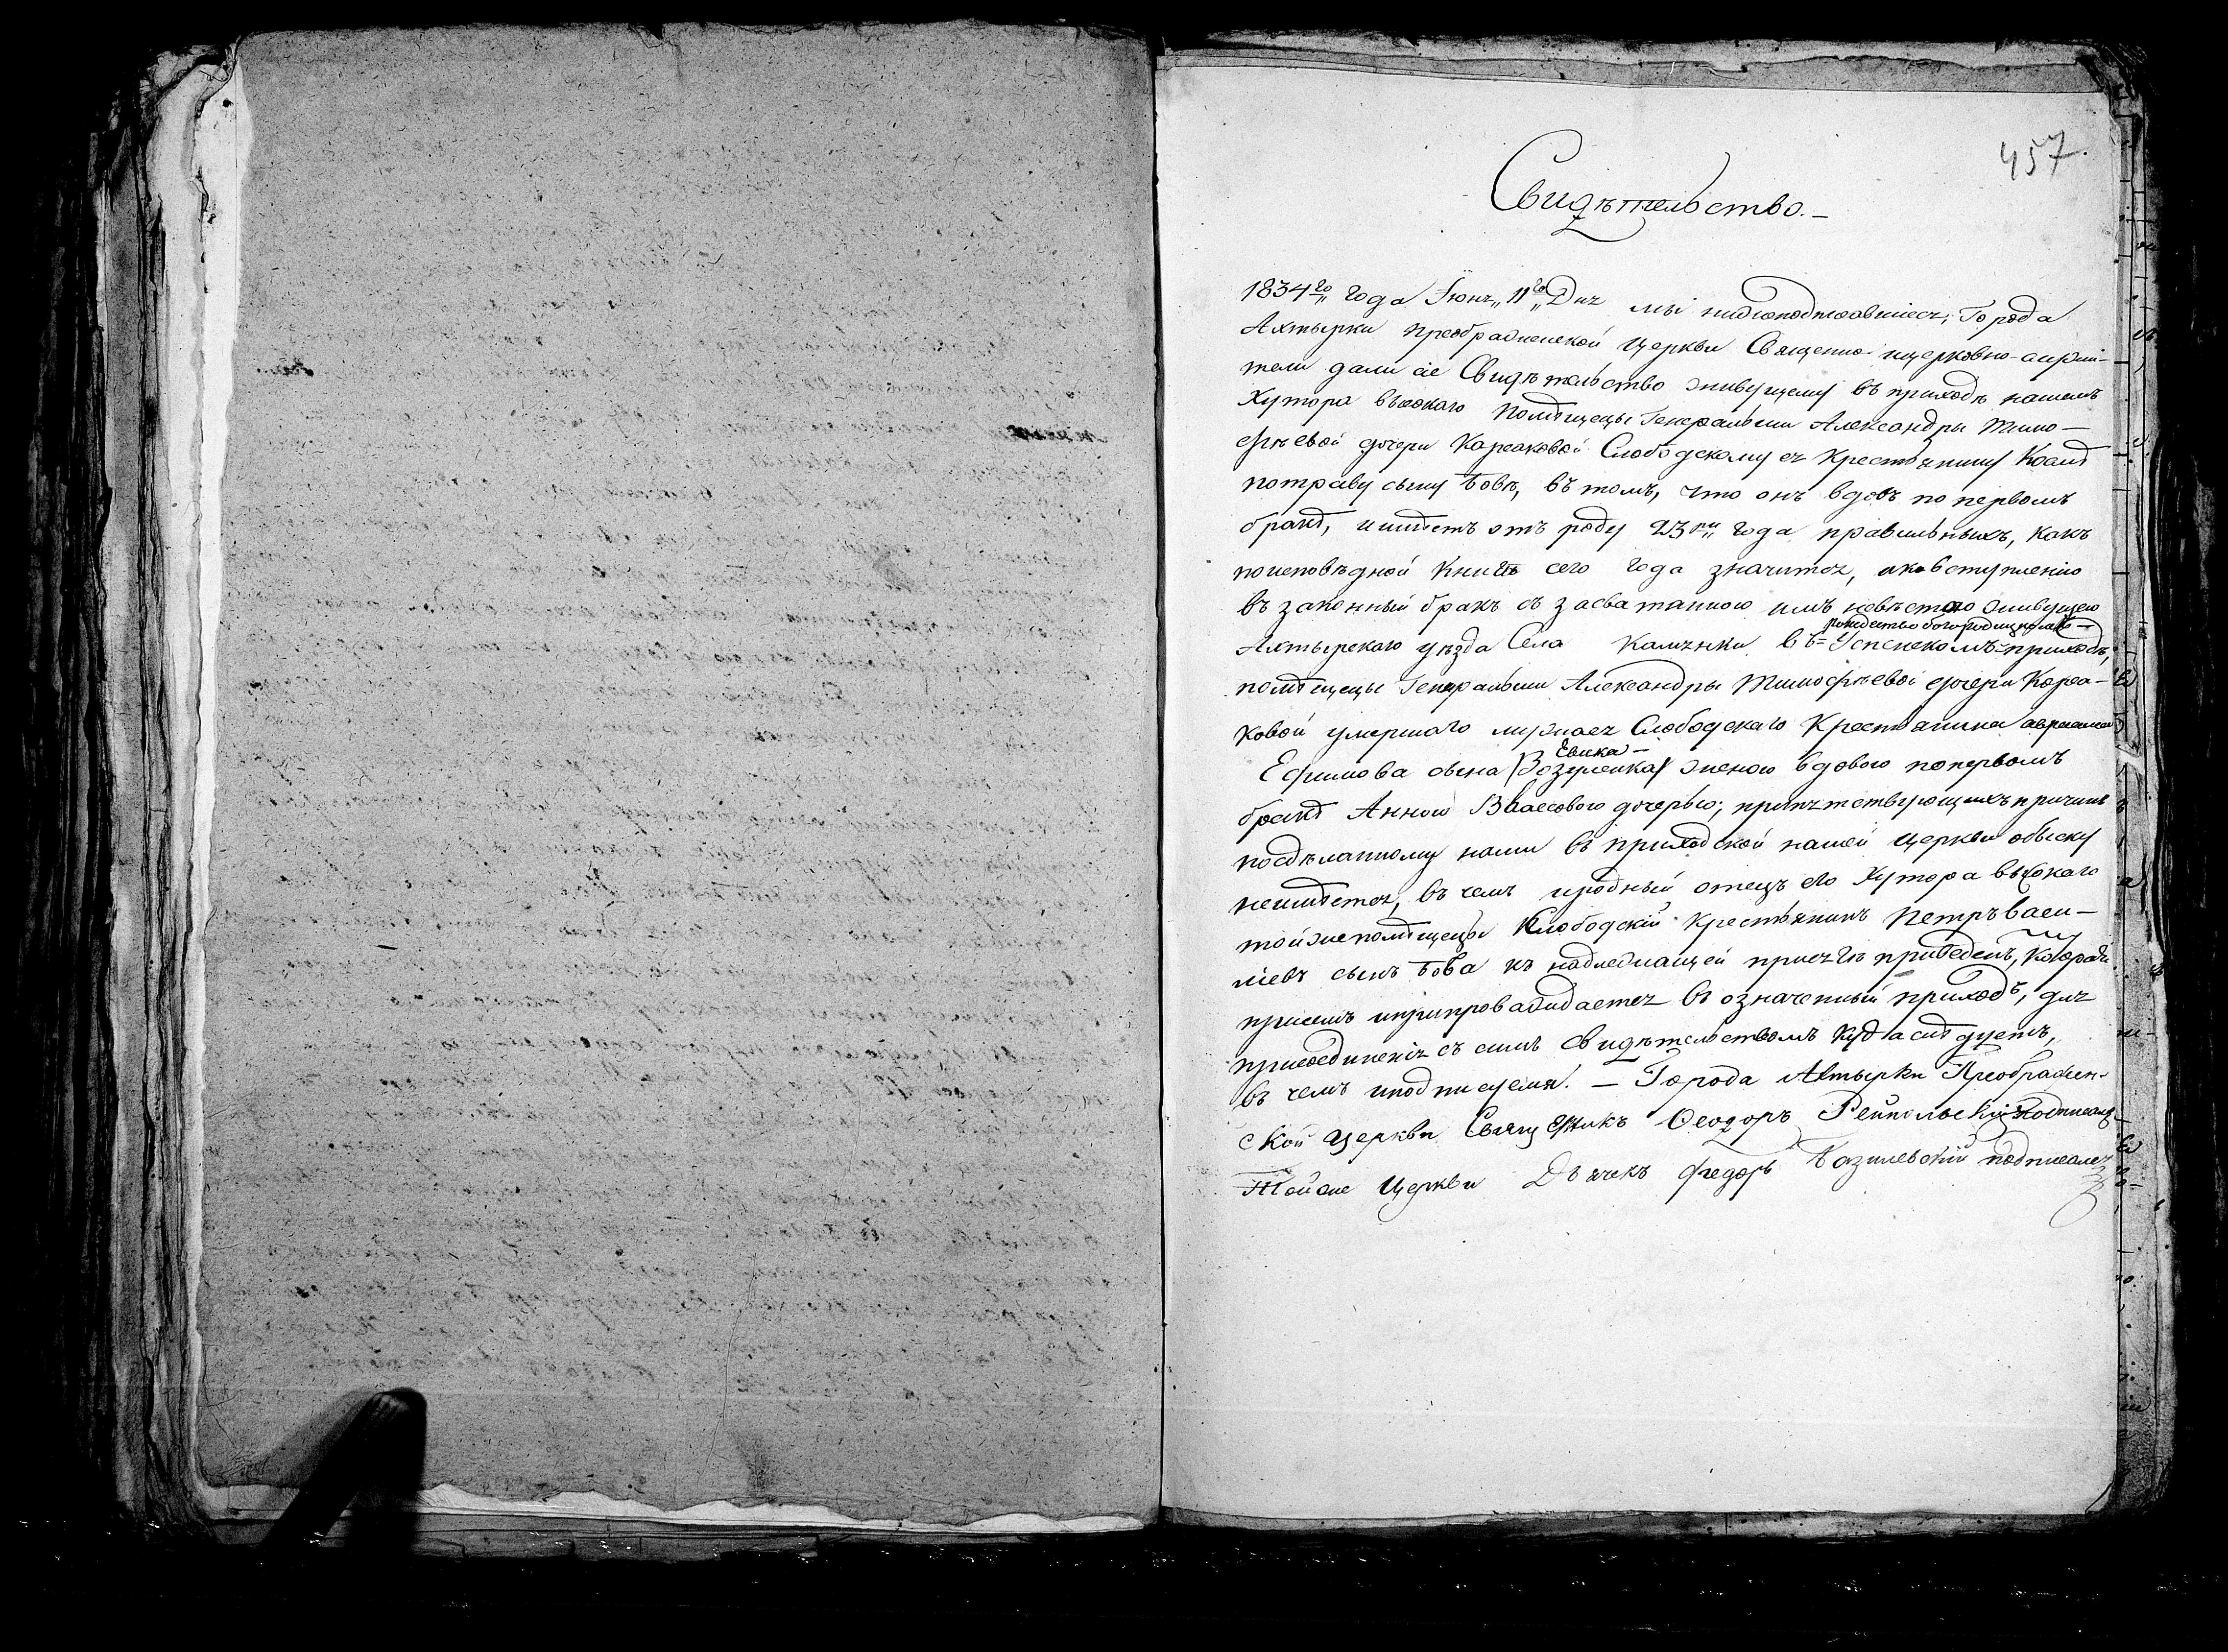 457.
Свидѣтельство.—
1834го года Іюня 11го Дня мы нижеподписавшіеся, Города
Ахтырки Преображенской Церкви Священно-ицерковно-служи-
тели дали сіе Свидѣтельство живущему въ приходѣ нашемъ
Хутора высокаго Помѣщецы Генеральши Александры Тимо—
фѣевой дочери Корсаковой Слободскому ея Крестьянину
Петрову сыну Бовѣ, въ томъ, что онъ вдовъ по первомъ
бракѣ, иимѣетъ отъ роду 23 года правильныхъ, какъ
поисповѣдной книгѣ сего года значится, иковступленію
въ законный бракъ съ засватанною имъ невѣстою живущею
рождество богородицкомъ—
Ахтырскаго уѣзда Села Камянки въ=Успенскомъ=приходѣ,
помѣщецы Генеральши Александры Тимофѣевой дочери Корса—
ковой умершаго мужаея Слободскаго Крестьянина
Евика—
Ефимова сына женою вдовою попервомъ
бракѣ Анною Власовою дочерью; припятствующихъ причинъ
посдѣланному нами въ приходской нашей церкви обыску
неимѣется, въ чемъ иродный отецъ его Хутора высокаго
тойже помѣщецы Слободскій Крестьянинъ Петръ Васи—
ліевъ сынъ Бова къ надлежащей присягѣ приведенъ, Который
присемъ ипрепровождается въ означенный приходъ, для
присоединенія съ симъ свидѣтельствомъ куда слѣдуетъ,
въ чемъ иподписуемся. — Города Ахтырки Преображен-
ской Церкви Священникъ Ѳеодоръ Рейпольскій подписался
Тойже Церкви Дьячекъ Федоръ Базилевскій подписался